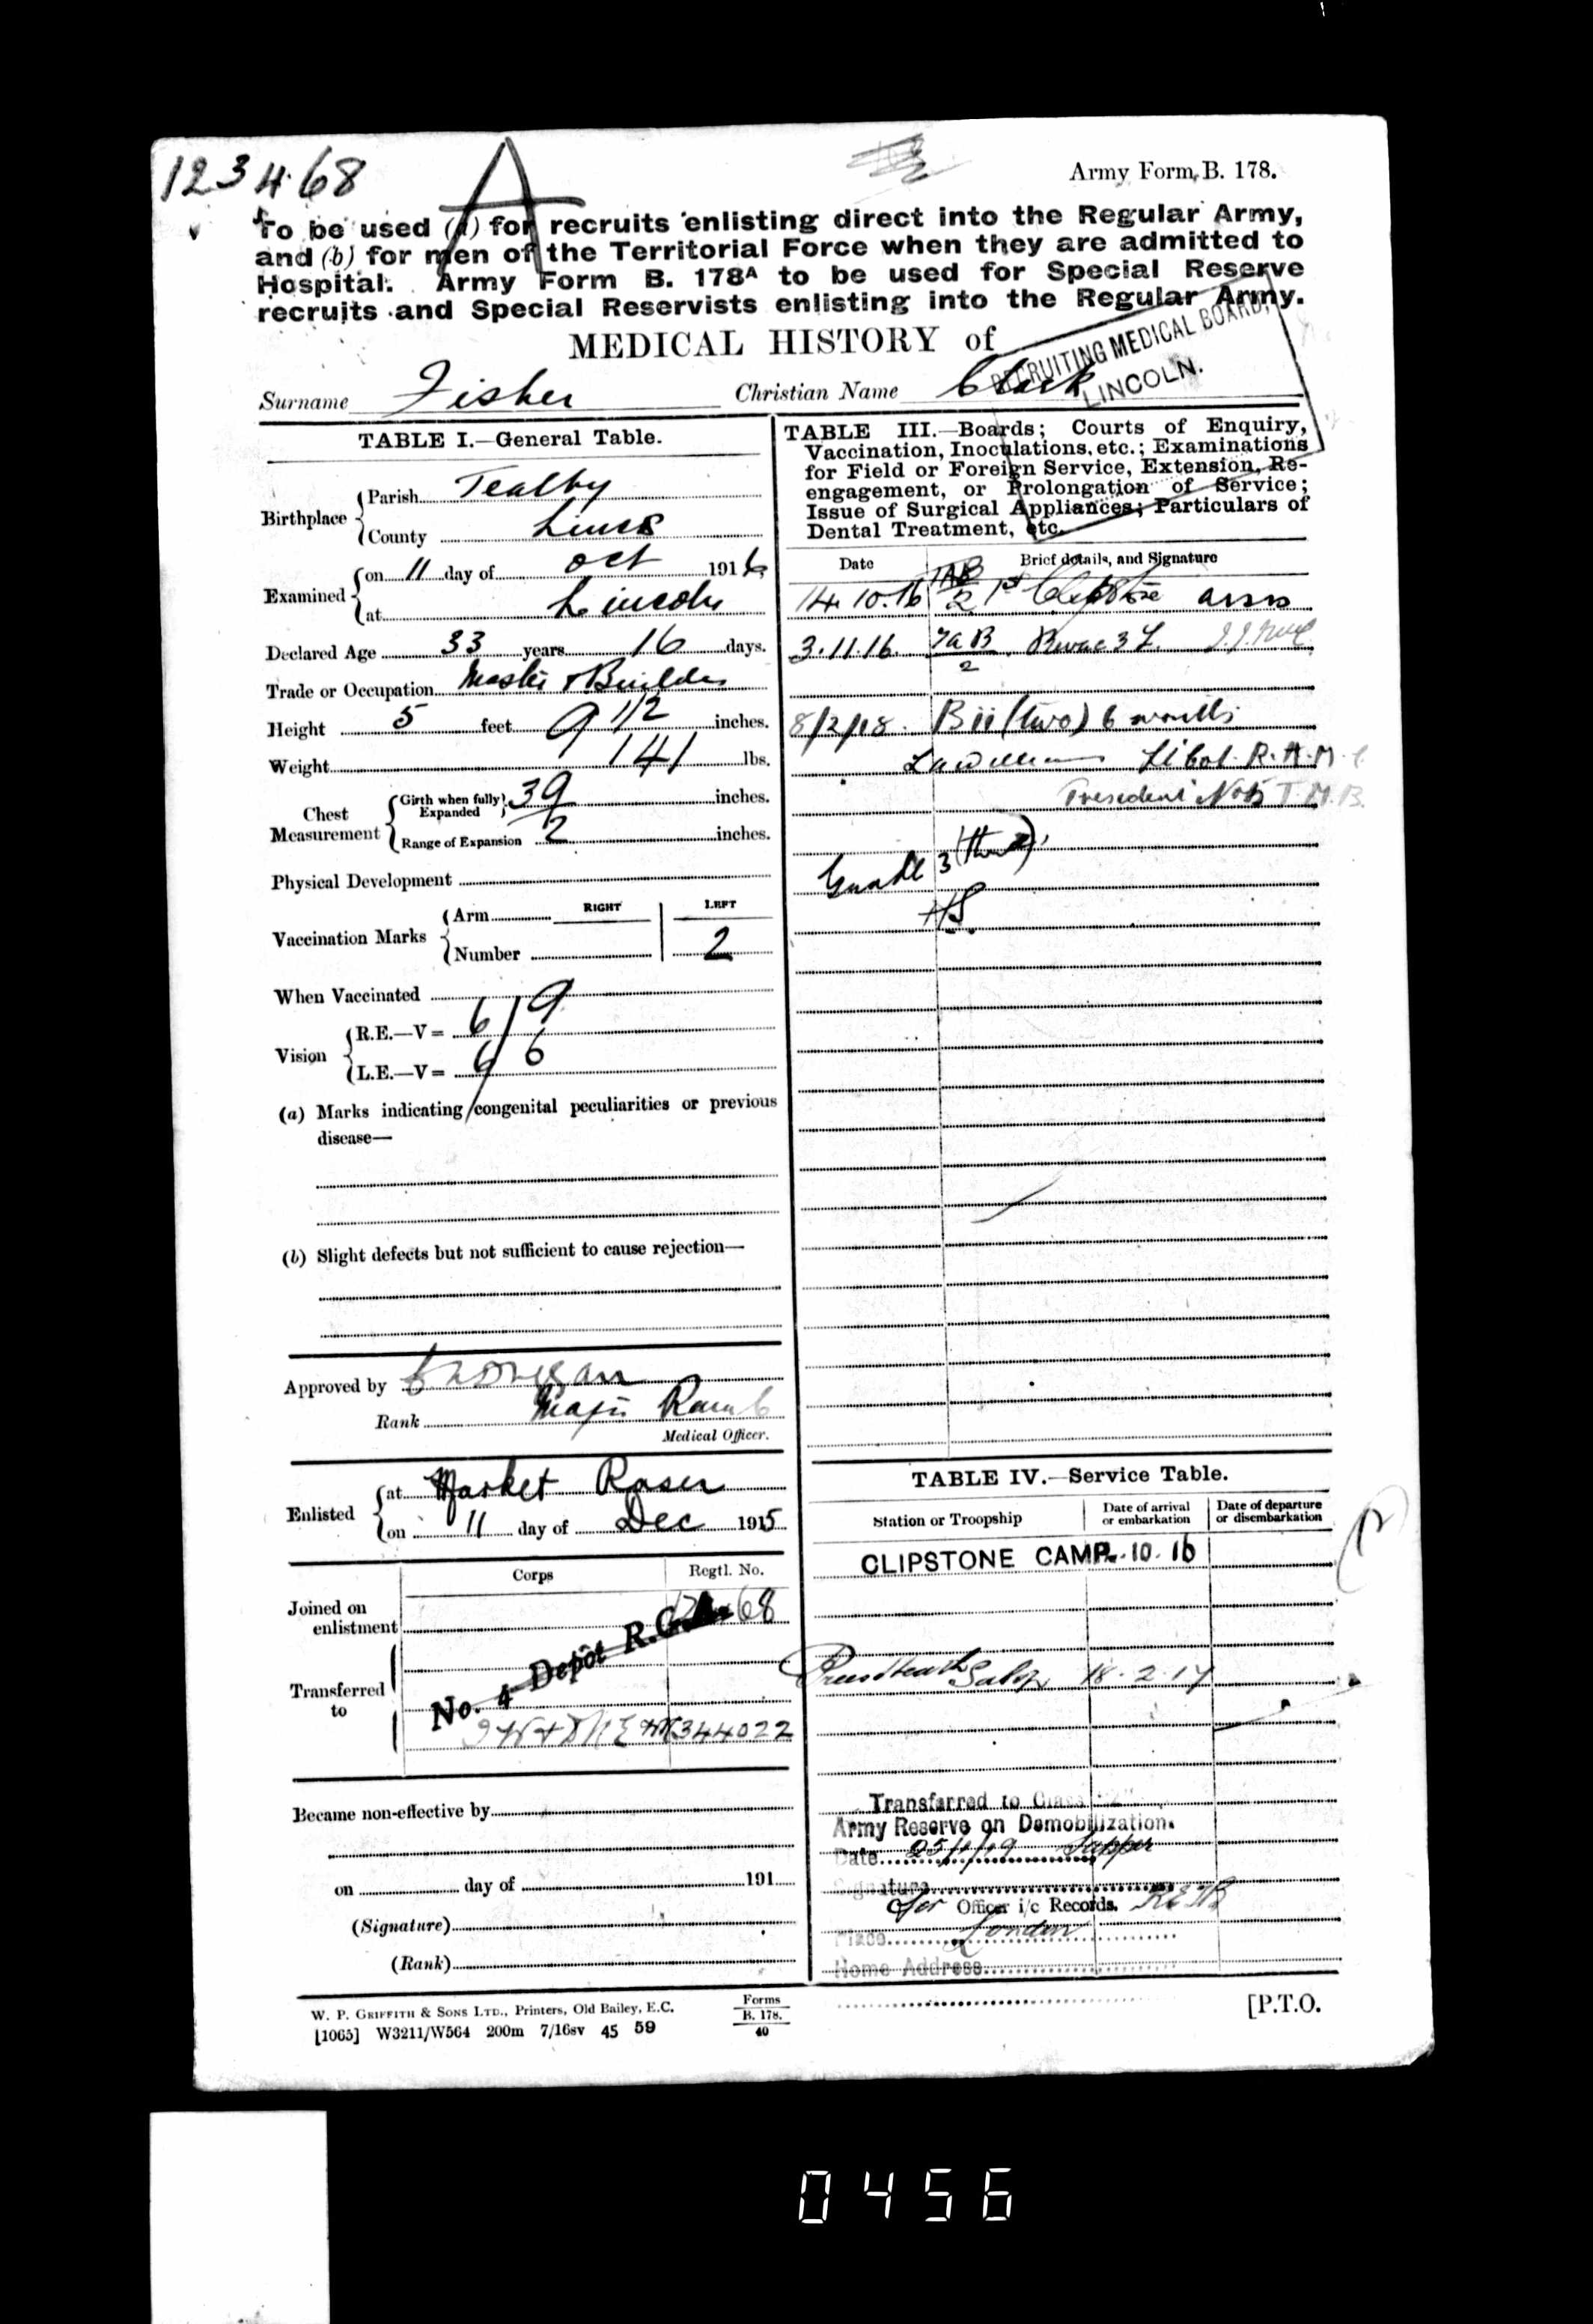 123468
A
Army Form B. 178.
To be used (a) for recruits enlisting direct into the Regular Army,
and (b) for men of the Territorial Force when they are admitted to
Hospital. Army Form B. 178A to be used for Special Reserve
recruits and Special Reservists enlisting into the Regular Army.
MEDICAL HISTORY of
RECRUITING MEDICAL BOARD,
LINCOLN.
Surname Fisher Christian Name Clark
TABLE I.—General Table.
Birthplace { Parish Tealby
County Lincs
Examined { on 11 day of Oct 1916
at Lincoln
Declared Age 33 years 16 days.
Trade or Occupation Master Builder
Height 5 feet 9 1/2 inches.
Weight 141 lbs.
Chest Measurement { Girth when fully Expanded } 39 inches.
Range of Expansion 2 inches.
Physical Development
Vaccination Marks { Arm RIGHT LEFT
Number 2
When Vaccinated
Vision { R.E.—V= 6/9
L.E.—V= 6/6
(a) Marks indicating congenital peculiarities or previous
disease—
(b) Slight defects but not sufficient to cause rejection—
Approved by
Rank Major RAMC
Medical Officer.
Enlisted { at Market Rasen
on 11 day of Dec 1915
Corps Regtl. No.
Joined on
enlistment 68
No. 4 Depôt R.G.A.
Transferred
to
344022
Became non-effective by
on day of 191
(Signature)
(Rank)
TABLE III.—Boards; Courts of Enquiry,
Vaccination, Inoculations, etc.; Examinations
for Field or Foreign Service, Extension, Re-
engagement, or Prolongation of Service;
Issue of Surgical Appliances; Particulars of
Dental Treatment, etc.
Date Brief details, and Signature
14.10.16 TAB 2 1st Clipstone
3.11.16. TAB 2
8/2/18. Bii (two) 6 months
Lt Col. R.A.M.C
President Notts T.M.B.
Grade 3 (three)
TABLE IV.—Service Table.
Station or Troopship Date of arrival or embarkation Date of departure or disembarkation
CLIPSTONE CAMP .10.16
Prees Heath Salop 18.2.17
Transferred to Class
Army Reserve on Demobilization.
Date 25/1/19 Sapper
Signature
for Officer i/c Records.
Place London
Home Address
W. P. GRIFFITH & SONS LTD., Printers, Old Bailey, E.C.
[1065] W3211/W564 200m 7/16sv 45 59
Forms
B. 178.
40
[P.T.O.
0456